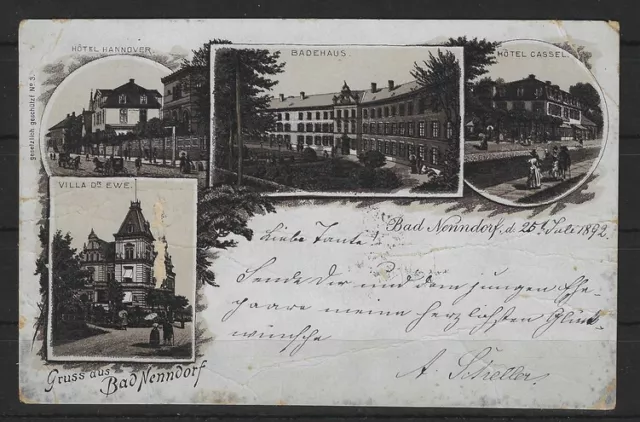 HÔTEL HANNOVER.
BADEHAUS
HÔTEL CASSEL.
gesetzlich geschützt No 5.
VILLA DR EWE.
Bad Nenndorf, d. 25t Juli 1892
Liebe Tante!
Sende Dir und dem jungen Ehe-
paare meine herzlichsten Glück-
wünsche
A. Scheller.
Gruss aus
Bad Nenndorf